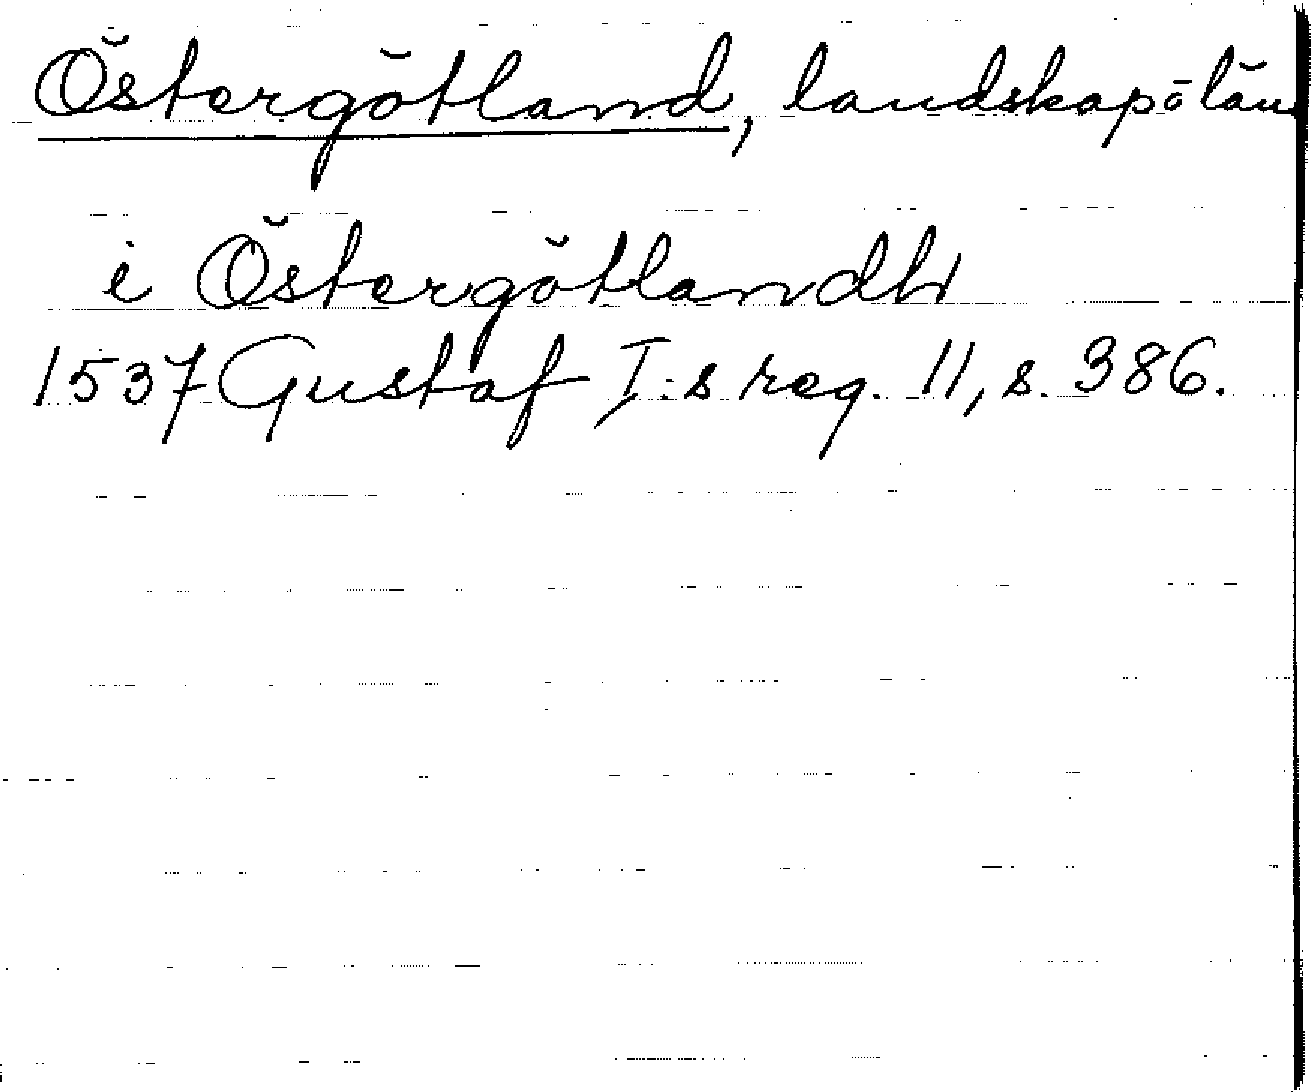 Östergötland, landskap o län
i Östergötlandh
1537 Gustaf I:s reg. 11, s. 386.